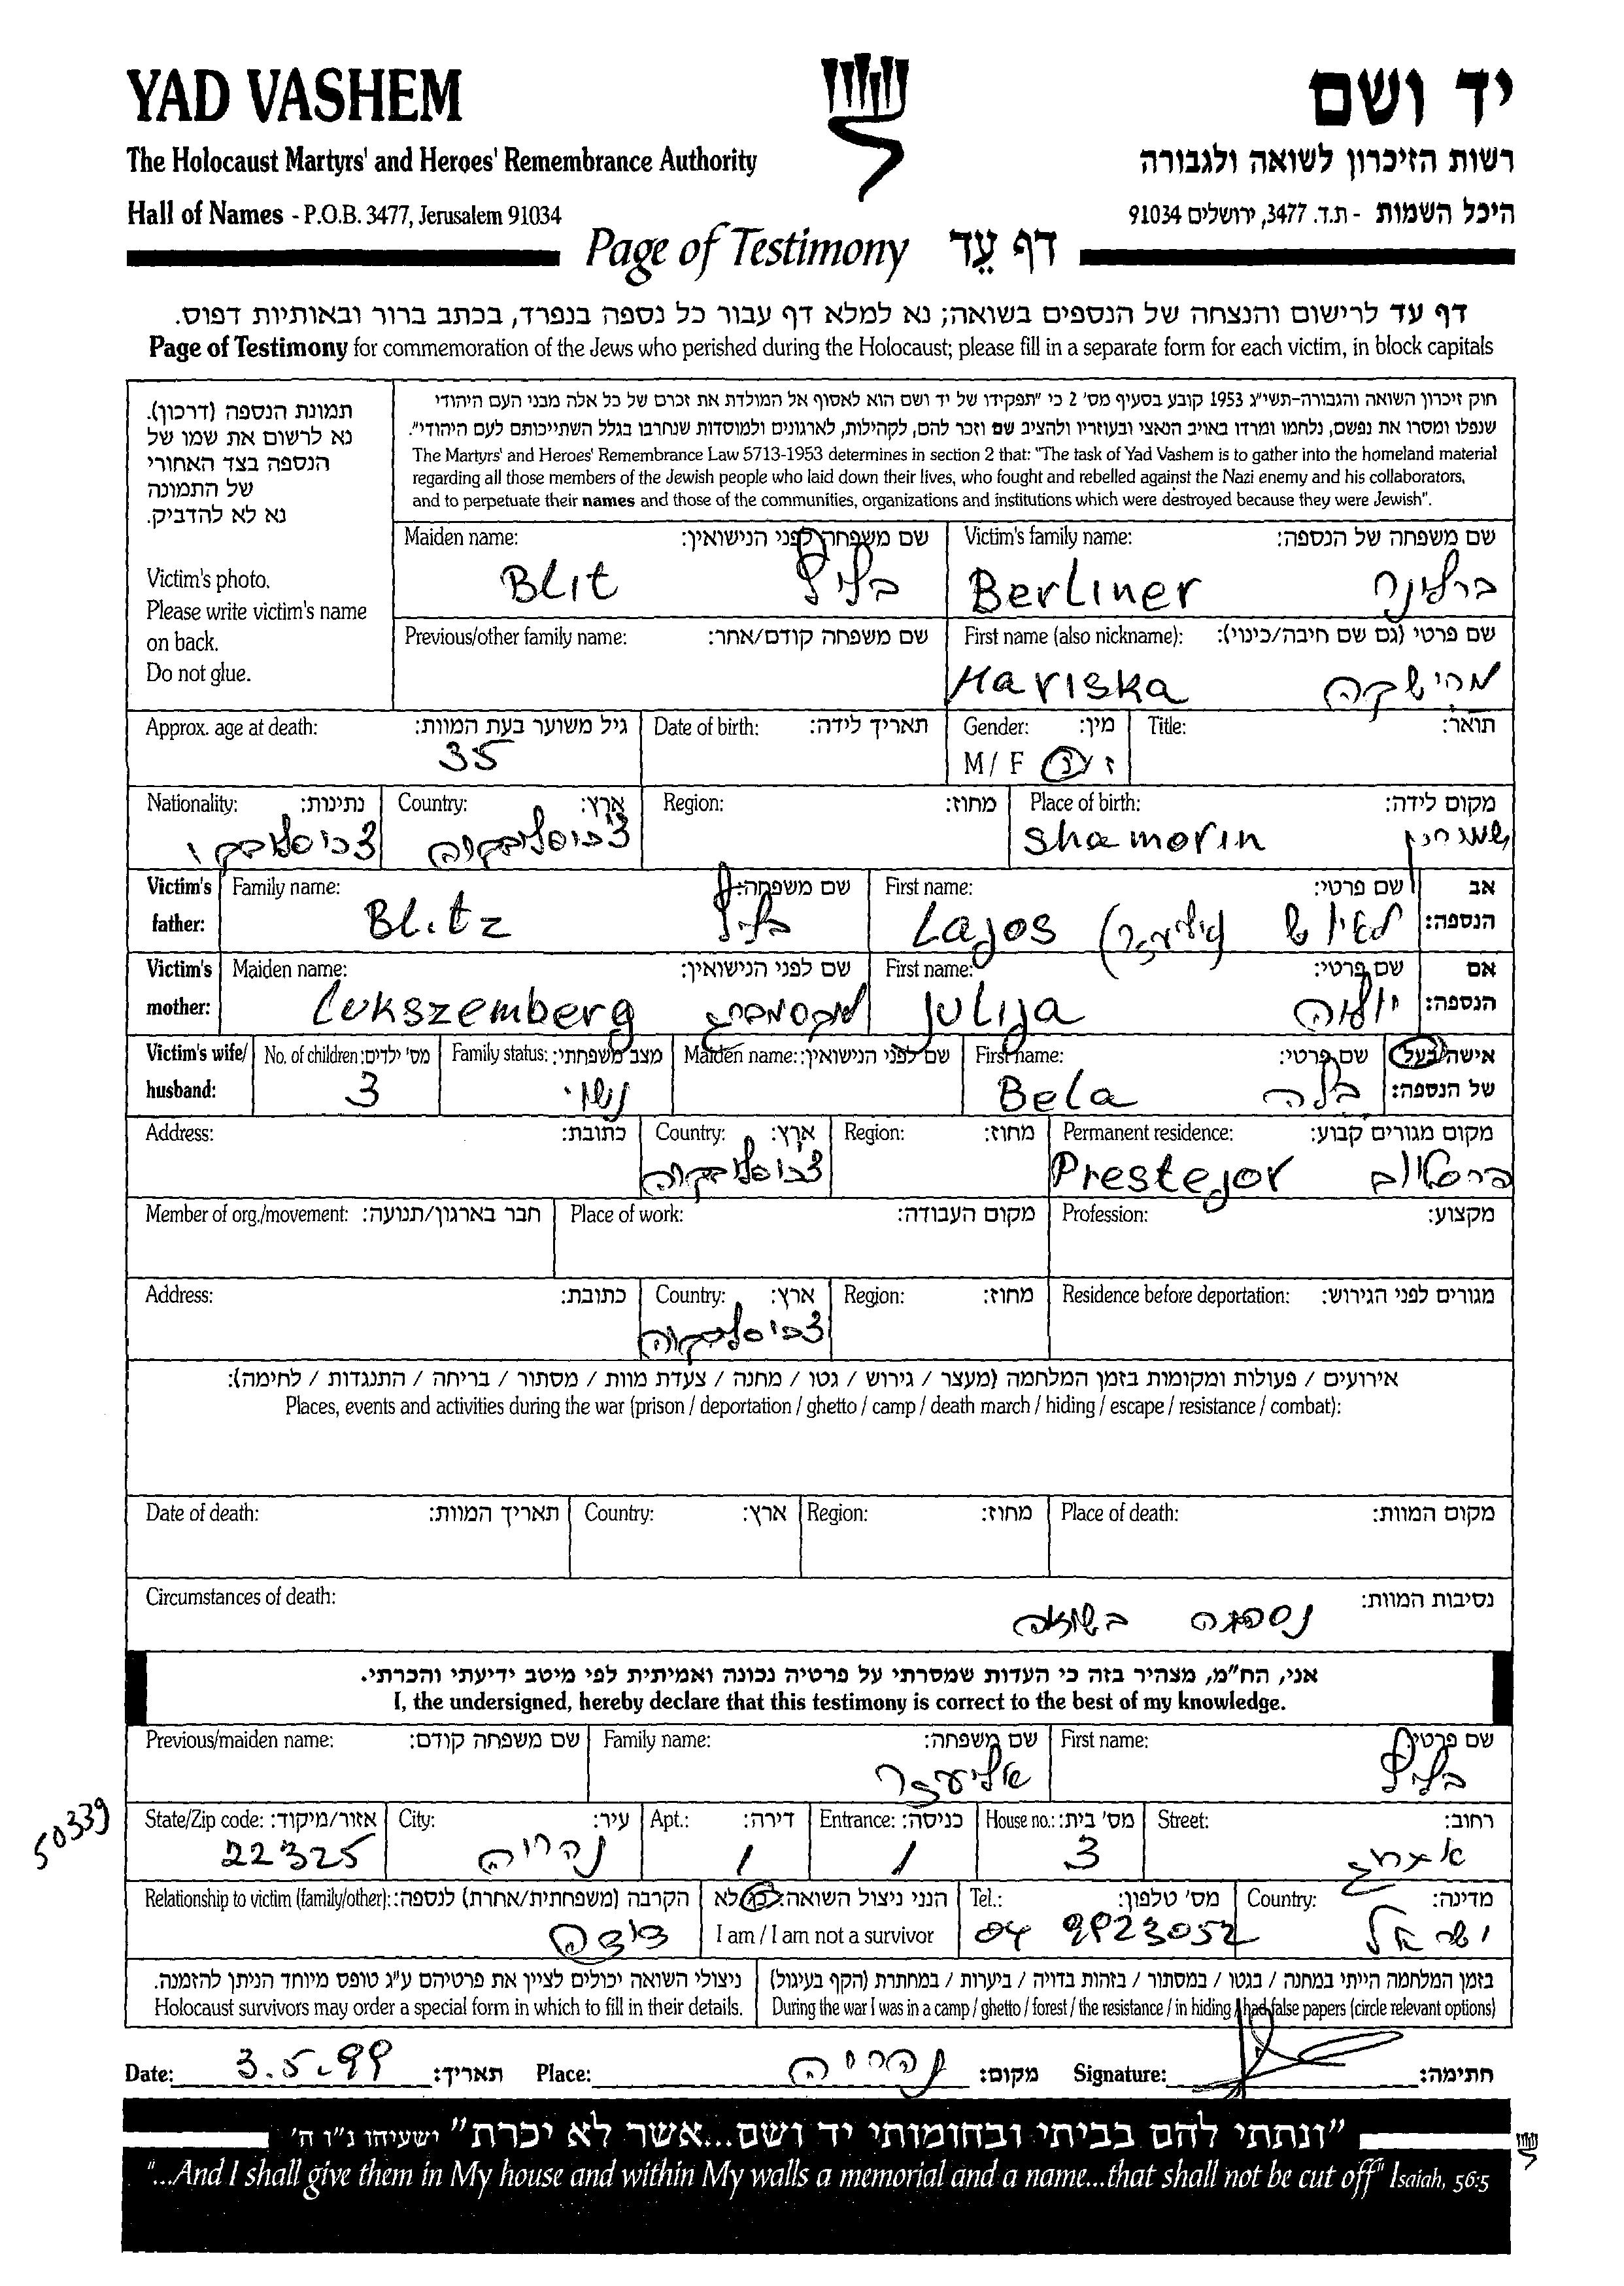 YAD VASHEM
יד ושם
The Holocaust Martyrs' and Heroes' Remembrance Authority
רשות הזיכרון לשואה ולגבורה
Hall of Names - P.O.B. 3477, Jerusalem 91034
היכל השמות - ת.ד. 3477, ירושלים 91034
Page of Testimony דף עֵד
דף עד לרישום והנצחה של הנספים בשואה; נא למלא דף עבור כל נספה בנפרד, בכתב ברור ובאותיות דפוס.
Page of Testimony for commemoration of the Jews who perished during the Holocaust; please fill in a separate form for each victim, in block capitals
תמונת הנספה (דרכון).
נא לרשום את שמו של
הנספה בצד האחורי
של התמונה
נא לא להדביק.
Victim's photo.
Please write victim's name
on back.
Do not glue.
חוק זיכרון השואה והגבורה-תשי"ג 1953 קובע בסעיף מס' 2 כי "תפקידו של יד ושם הוא לאסוף אל המולדת את זכרם של כל אלה מבני העם היהודי
שנפלו ומסרו את נפשם, נלחמו ומרדו באויב הנאצי ובעוזריו ולהציב שם וזכר להם, לקהילות, לארגונים ולמוסדות שנחרבו בגלל השתייכותם לעם היהודי".
The Martyrs' and Heroes' Remembrance Law 5713-1953 determines in section 2 that: "The task of Yad Vashem is to gather into the homeland material
regarding all those members of the Jewish people who laid down their lives, who fought and rebelled against the Nazi enemy and his collaborators,
and to perpetuate their names and those of the communities, organizations and institutions which were destroyed because they were Jewish".
Maiden name: שם משפחה לפני הנישואין:
Blit בליץ
Victim's family name: שם משפחה של הנספה:
Berliner ברלינר
Previous/other family name: שם משפחה קודם/אחר:
First name (also nickname): שם פרטי (גם שם חיבה/כינוי):
Mariska מרישקה
Approx. age at death: גיל משוער בעת המוות:
35
Date of birth: תאריך לידה:
Gender: מין:
M / F ז / נ
Title: תואר:
Nationality: נתינות:
צ'כוסלובקי
Country: ארץ:
צ'כוסלובקיה
Region: מחוז:
Place of birth: מקום לידה:
Shamorin שמורין
Victim's father: אב הנספה:
Family name: שם משפחה:
Blitz בליץ
First name: שם פרטי:
Lajos לאיוש (אליעזר)
Victim's mother: אם הנספה:
Maiden name: שם לפני הנישואין:
Lukszemberg לוקסמברג
First name: שם פרטי:
Julija יוליה
Victim's wife/ husband: אישה/בעל של הנספה:
No. of children: מס' ילדים:
3
Family status: מצב משפחתי:
נשוי
Maiden name: שם לפני הנישואין:
First name: שם פרטי:
Bela בלה
Address: כתובת:
Country: ארץ:
צ'כוסלובקיה
Region: מחוז:
Permanent residence: מקום מגורים קבוע:
Prestejor
Member of org./movement: חבר בארגון/תנועה:
Place of work: מקום העבודה:
Profession: מקצוע:
Address: כתובת:
Country: ארץ:
צ'כוסלובקיה
Region: מחוז:
Residence before deportation: מגורים לפני הגירוש:
אירועים / פעולות ומקומות בזמן המלחמה (מעצר / גירוש / גטו / מחנה / צעדת מוות / מסתור / בריחה / התנגדות / לחימה):
Places, events and activities during the war (prison / deportation / ghetto / camp / death march / hiding / escape / resistance / combat):
Date of death: תאריך המוות:
Country: ארץ:
Region: מחוז:
Place of death: מקום המוות:
Circumstances of death: נסיבות המוות:
נספתה בשואה
אני, הח"מ, מצהיר בזה כי העדות שמסרתי על פרטיה נכונה ואמיתית לפי מיטב ידיעתי והכרתי.
I, the undersigned, hereby declare that this testimony is correct to the best of my knowledge.
Previous/maiden name: שם משפחה קודם:
Family name: שם משפחה:
אליעזר
First name: שם פרטי:
בליץ
50339
State/Zip code: אזור/מיקוד:
22325
City: עיר:
נהריה
Apt.: דירה:
1
Entrance: כניסה:
1
House no.: מס' בית:
3
Street: רחוב:
Relationship to victim (family/other): הקרבה (משפחתית/אחרת) לנספה:
דודה
הנני ניצול השואה: כן/לא
I am / I am not a survivor
Tel.: מס' טלפון:
04 9923052
Country: מדינה:
ישראל
ניצולי השואה יכולים לציין את פרטיהם ע"ג טופס מיוחד הניתן להזמנה.
Holocaust survivors may order a special form in which to fill in their details.
בזמן המלחמה הייתי במחנה / בגטו / במסתור / בזהות בדויה / ביערות / במחתרת (הקף בעיגול)
During the war I was in a camp / ghetto / forest / the resistance / in hiding / had false papers (circle relevant options)
Date: 3.5.99 תאריך: Place: נהריה מקום: Signature: חתימה:
"ונתתי להם בביתי ובחומותי יד ושם...אשר לא יכרת" ישעיהו נ"ו ה'
"...And I shall give them in My house and within My walls a memorial and a name...that shall not be cut off" Isaiah, 56:5